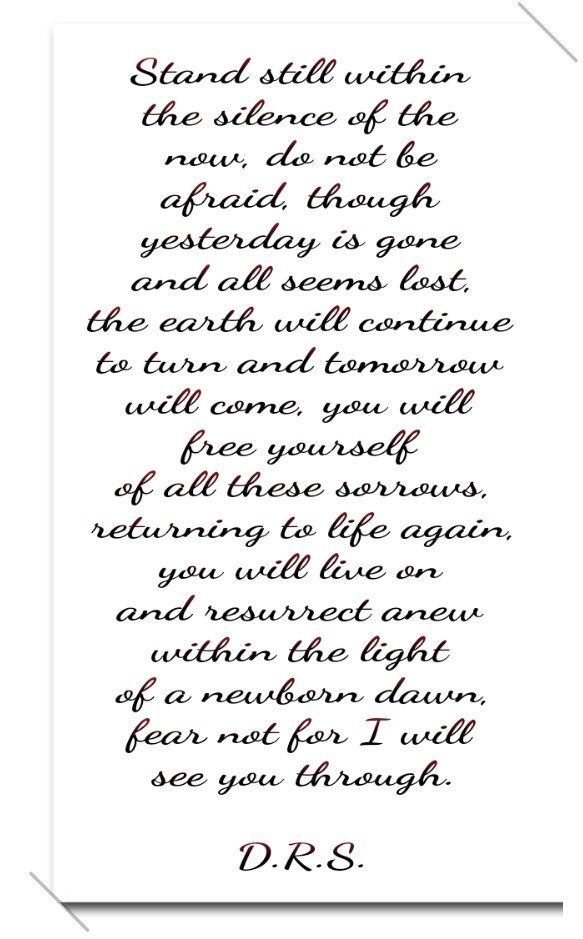 Stand still within
the silence of the
now, do not be
afraid, though
yesterday is gone
and all seems lost,
the earth will continue
to turn and tomorrow
will come, you will
free yourself
of all these sorrows,
returning to life again,
you will live on
and resurrect anew
within the light
of a newborn dawn,
fear not for I will
see you through.
D.R.S.